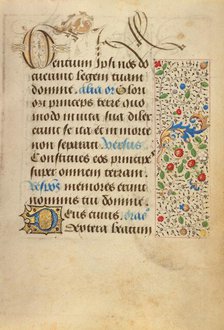 Gentium Ipsi nos do
cuerunt legem tuam
domine. Glori
osi principes terre quo
modo in vita sua dilex
erunt ita et in morte
non sunt separati Versus
Constitues eos
super omnem terram.
memores erunt
nominis tui domine
Deus cuius
dextera beatum